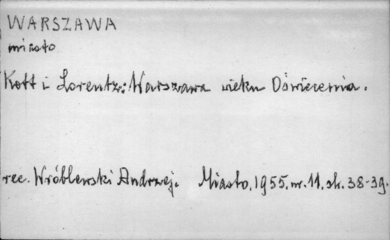 WARSZAWA
miasto
Kott i Lorentz: Warszawa wieku Oświecenia.
rec. Wróblewski Andrzej. Miasto, 1955. nr. 11. sh. 38-39.